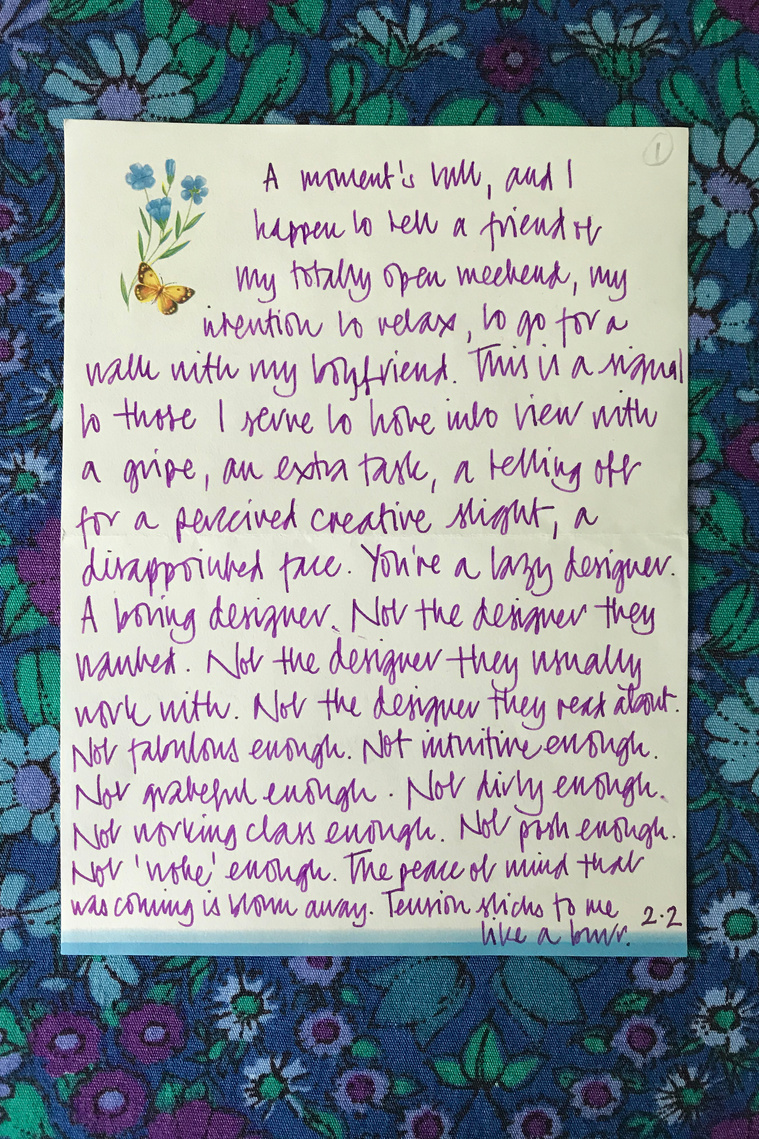 1
A moment's lull, and I
happen to tell a friend of
my totally open weekend, my
intention to relax, to go for a
walk with my boyfriend. This is a signal
to those I serve to hove into view with
a gripe, an extra task, a telling off
for a perceived creative slight, a
disappointed face. You're a lazy designer.
A boring designer. Not the designer they
wanted. Not the designer they usually
work with. Not the designer they read about.
Not fabulous enough. Not intuitive enough.
Not grateful enough. Not dirty enough.
Not working class enough. Not posh enough.
Not 'woke' enough. The peace of mind that
was coming is blown away. Tension sticks to me
like a burr.
2.2